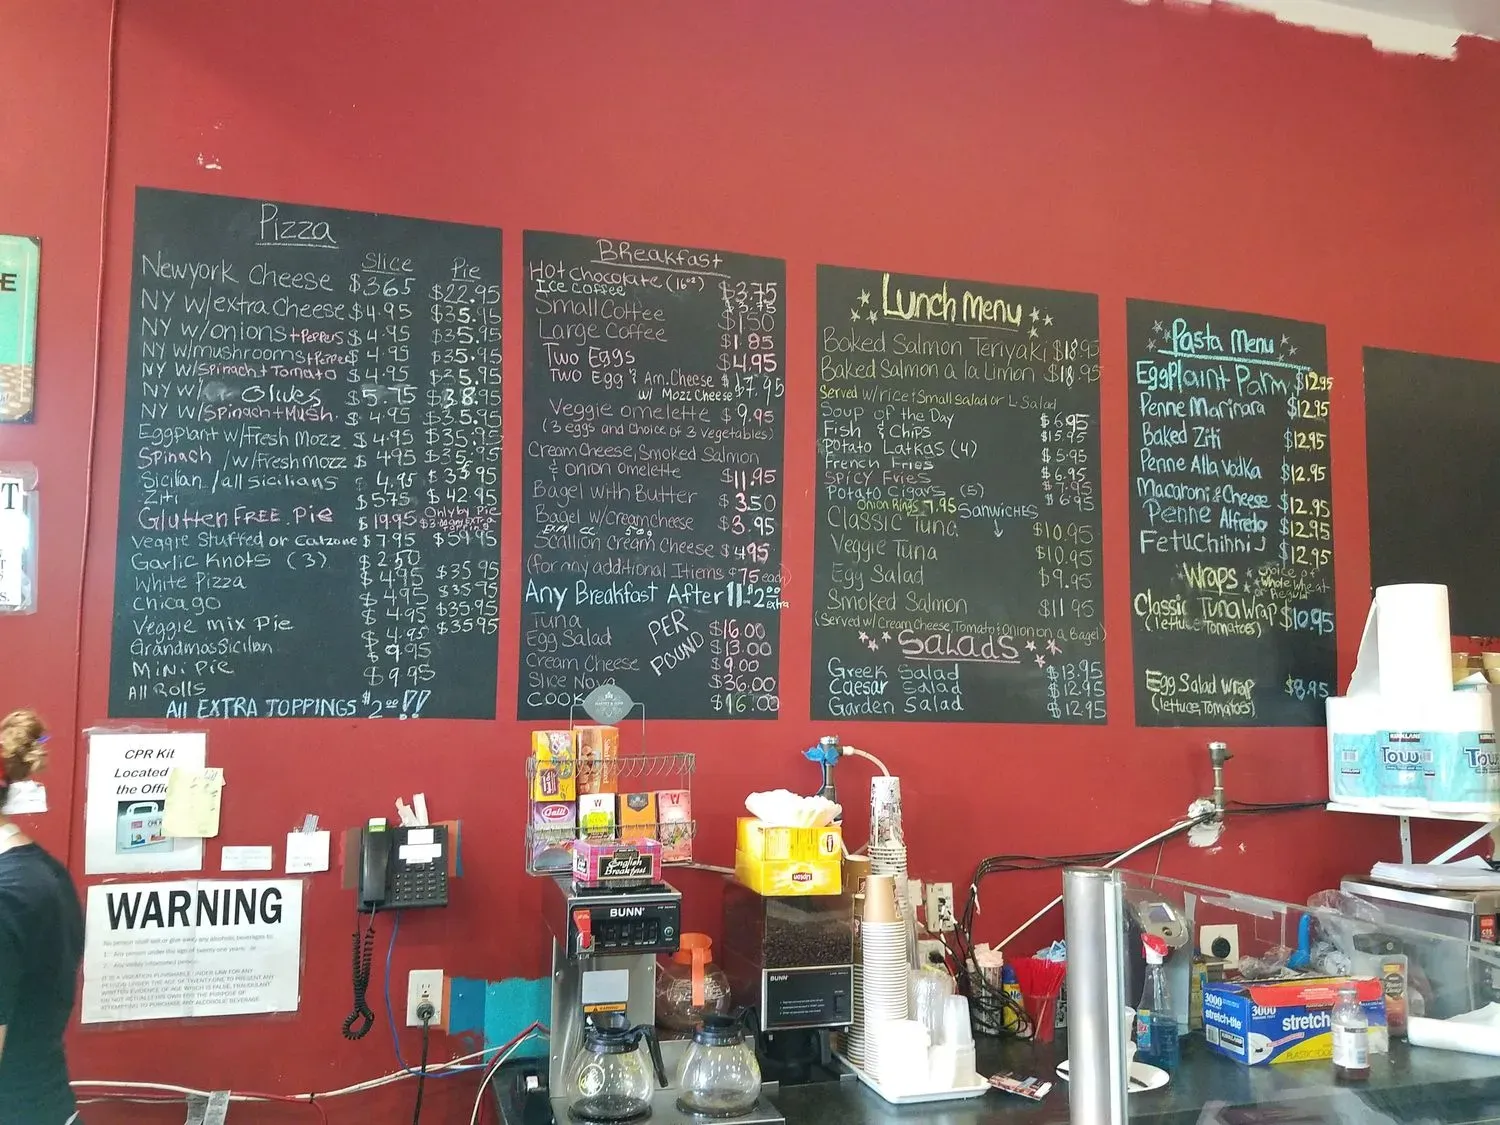 Pizza
Slice Pie
Newyork Cheese $3.65 $22.95
NY w/extra Cheese $4.95 $35.95
NY w/onions + Peppers $4.95 $35.95
NY w/mushrooms + Pepper $4.95 $35.95
NY w/Spinach + Tomato $4.95 $35.95
NY w/ Olives $5.75 $38.95
NY w/Spinach + Mush. $4.95 $35.95
Eggplant w/Fresh Mozz $4.95 $35.95
Spinach /w/Fresh Mozz $4.95 $35.95
Sicilian /all sicilians $4.95 $35.95
Ziti $5.75 $42.95
Glutten FREE Pie $19.95 Only by Pie
Veggie Stuffed or Calzone $7.95 $59.95
Garlic Knots (3) $2.50
White Pizza $4.95 $35.95
Chicago $4.95 $35.95
Veggie mix Pie $4.95 $35.95
Grandmas Sicilian $4.95 $35.95
Mini Pie $9.95
All Rolls $9.95
All EXTRA TOPPINGS $2.00 !!
Breakfast
Hot Chocolate (16oz) $3.75
Ice Coffee $3.75
Small Coffee $1.50
Large Coffee $1.85
Two Eggs $4.95
Two Egg & Am.Cheese $7.95
w/ Mozz Cheese
Veggie omelette $9.95
(3 eggs and Choice of 3 Vegetables)
Cream Cheese, Smoked Salmon
& onion omelette $11.95
Bagel with Butter $3.50
Bagel w/Creamcheese $3.95
Scallion Cream Cheese $4.95
(for any additional Itiems $.75 each)
Any Breakfast After 11- 2.00 Extra
PER POUND
Tuna $16.00
Egg Salad $13.00
Cream Cheese $9.00
Slice Nova $36.00
COOK $16.00
Lunch Menu
Baked Salmon Teriyaki $18.95
Baked Salmon a la Limon $18.95
Served w/rice & Small salad or L. Salad
Soup of the Day $6.95
Fish & Chips $15.95
Potato Latkas (4) $5.95
French Fries $6.95
Spicy Fries $7.95
Potato Cigars (5) $6.95
Onion Rings 7.95 Sanwiches
Classic Tuna $10.95
Veggie Tuna $10.95
Egg Salad $9.95
Smoked Salmon $11.95
(Served w/Cream Cheese, Tomato & Onion on a Bagel)
Salads
Greek Salad $13.95
Caesar Salad $12.95
Garden Salad $12.95
Pasta Menu
Eggplaint Parm $12.95
Penne Marinara $12.95
Baked Ziti $12.95
Penne Alla Vodka $12.95
Macaroni & Cheese $12.95
Penne Alfredo $12.95
Fetuchinni $12.95
Wraps choice of
whole wheat
or Regular
Classic Tuna Wrap $10.95
(lettuce, Tomatoes)
Egg Salad Wrap $8.95
(lettuce, Tomatoes)
CPR Kit
Located
the Offic
WARNING
No person shall sell or give away any alcoholic beverages to:
1. Any person under the age of twenty-one years; or
2. Any visibly intoxicated person.
IT IS A VIOLATION PUNISHABLE UNDER LAW FOR ANY
PERSON UNDER THE AGE OF TWENTY-ONE TO PRESENT ANY
WRITTEN EVIDENCE OF AGE WHICH IS FALSE, FRAUDULENT
OR NOT ACTUALLY HIS OWN FOR THE PURPOSE OF
ATTEMPTING TO PURCHASE ANY ALCOHOLIC BEVERAGE.
English
Breakfast
Lipton
BUNN
BUNN
WARNING
KIRKLAND
Tow
KIRKLAND
Tow
3000
stretch-tite
3000
stretch
PLASTIC FOOD